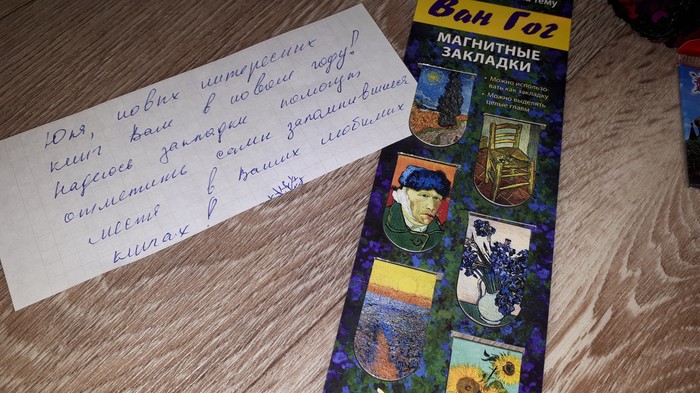 Юля, новых интересных
книг Вам в новом году!
Надеюсь закладки помогут
отметить самые запомнившиеся
места в Ваших любимых
книгах!
тему
Ван Гог
МАГНИТНЫЕ
ЗАКЛАДКИ
• Можно использо-
вать как закладку
• Можно выделять
целые главы